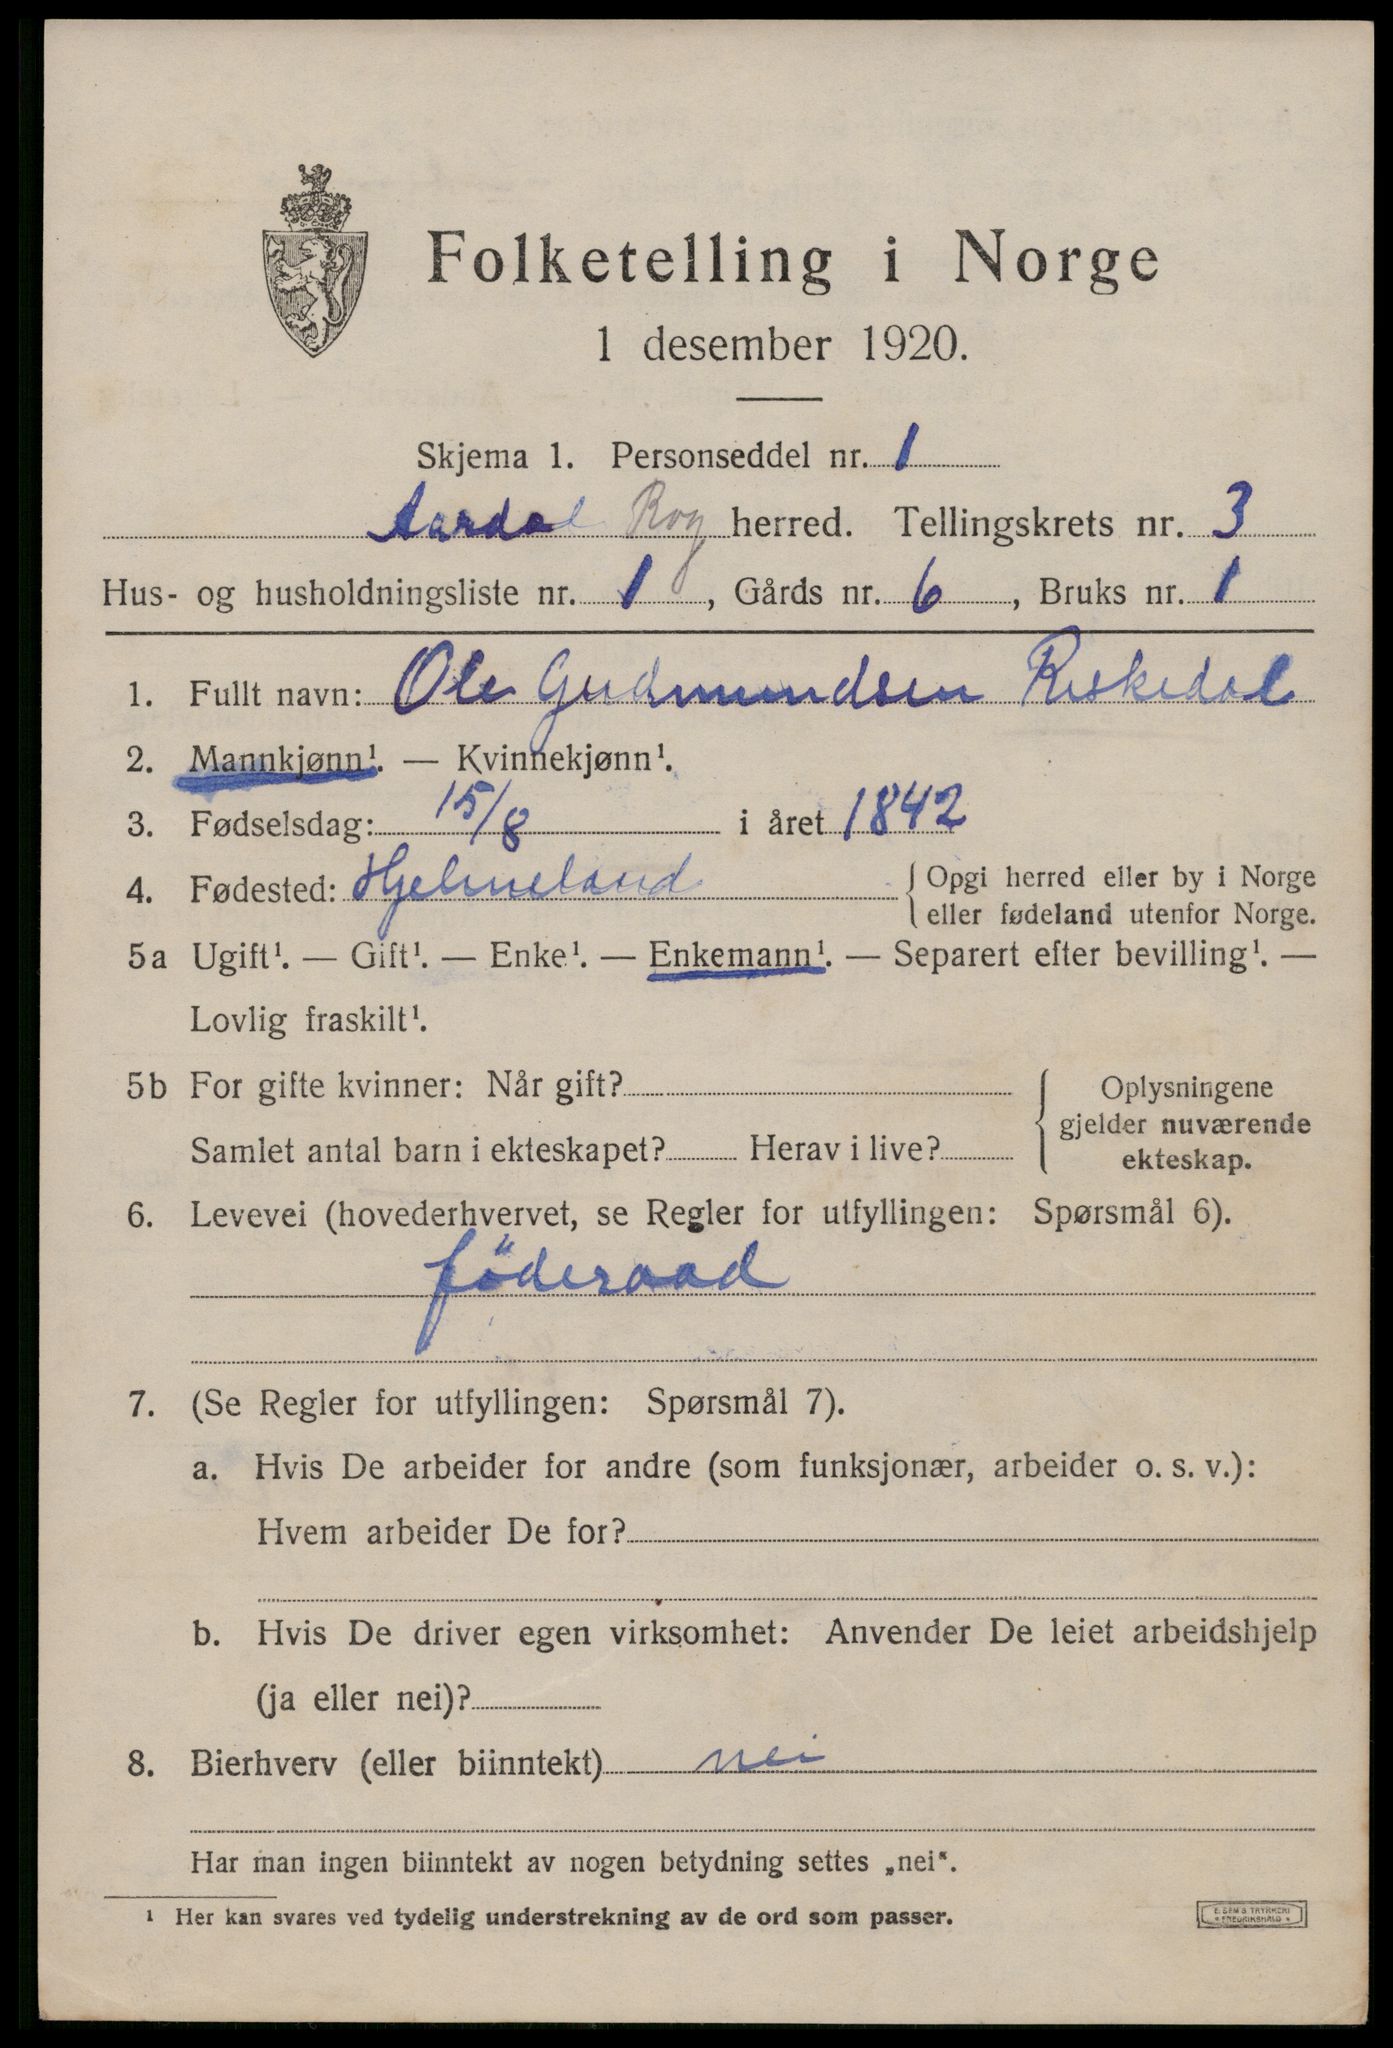 Folketelling i Norge
1 desember 1920.
Skjema 1. Personseddel nr. 1
Aardal Rog herred. Tellingskrets nr. 3
Hus- og husholdningsliste nr. 1, Gårds nr. 6, Bruks nr. 1
1. Fullt navn: Ole Gudmundsen Riskedal
2. Mannkjønn¹. — Kvinnekjønn¹.
3. Fødselsdag: 15/8 i året 1842
4. Fødested: Hjelmeland { Opgi herred eller by i Norge
eller fødeland utenfor Norge.
5a Ugift¹. — Gift¹. — Enke¹. — Enkemann¹. — Separert efter bevilling¹. —
Lovlig fraskilt¹.
5b For gifte kvinner: Når gift? { Oplysningene
gjelder nuværende
Samlet antal barn i ekteskapet? Herav i live? ekteskap.
6. Levevei (hovederhvervet, se Regler for utfyllingen: Spørsmål 6).
föderaad
7. (Se Regler for utfyllingen: Spørsmål 7).
a. Hvis De arbeider for andre (som funksjonær, arbeider o. s. v.):
Hvem arbeider De for?
b. Hvis De driver egen virksomhet: Anvender De leiet arbeidshjelp
(ja eller nei)?
8. Bierhverv (eller biinntekt) nei
Har man ingen biinntekt av nogen betydning settes „nei“.
¹ Her kan svares ved tydelig understrekning av de ord som passer.
E. SEM'S TRYKKERI
* FREDRIKSHALD *